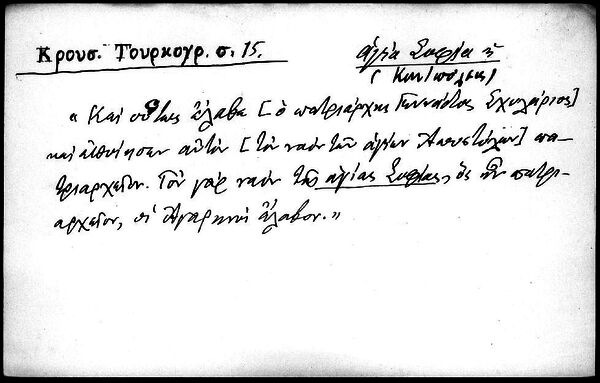 Κρουσ. Τουρκογρ. σ. 15.
ἁγία Σοφία
(Κων/πόλεως)
« Καὶ οὕτως ἔλαβε [ὁ πατριάρχης Γεννάδιος Σχολάριος]
καὶ ἐποίησεν αὐτὸν [τὸν ναὸν τῶν ἁγίων Ἀποστόλων] πα-
τριαρχεῖον. Τὸν γὰρ ναὸν τῆς ἁγίας Σοφίας, ὃς ἦν πατρι-
αρχεῖον, οἱ Ἀγαρηνοὶ ἔλαβον.»